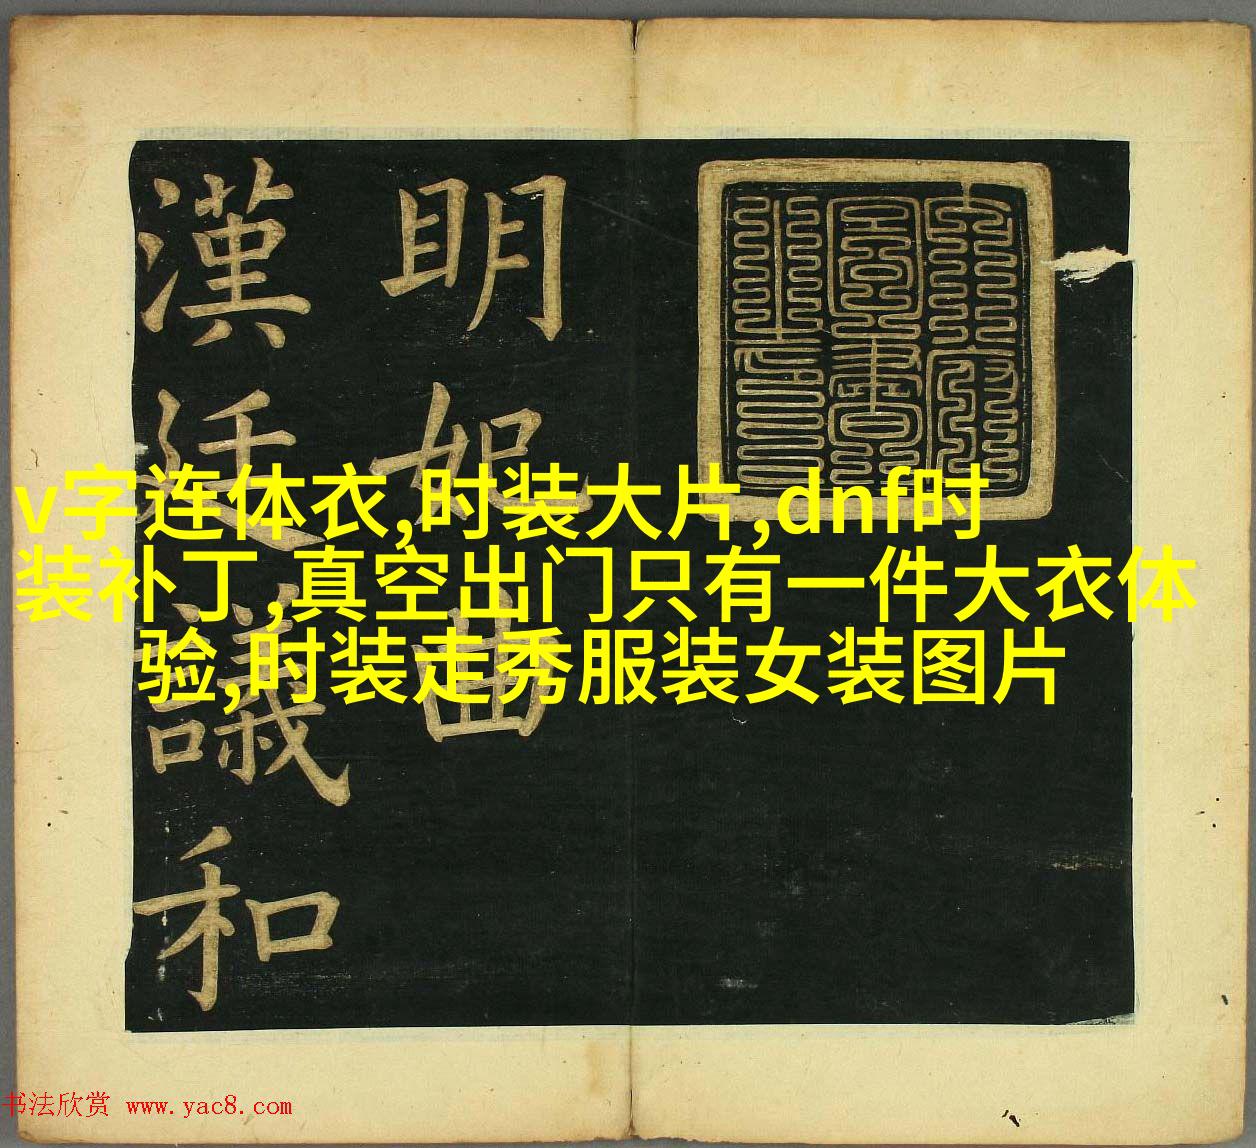 明妃曲
漢廷議和
v字连体衣,时装大片,dnf时
装补丁,真空出门只有一件大衣体
验,时装走秀服装女装图片
书法欣赏 www.yac8.com